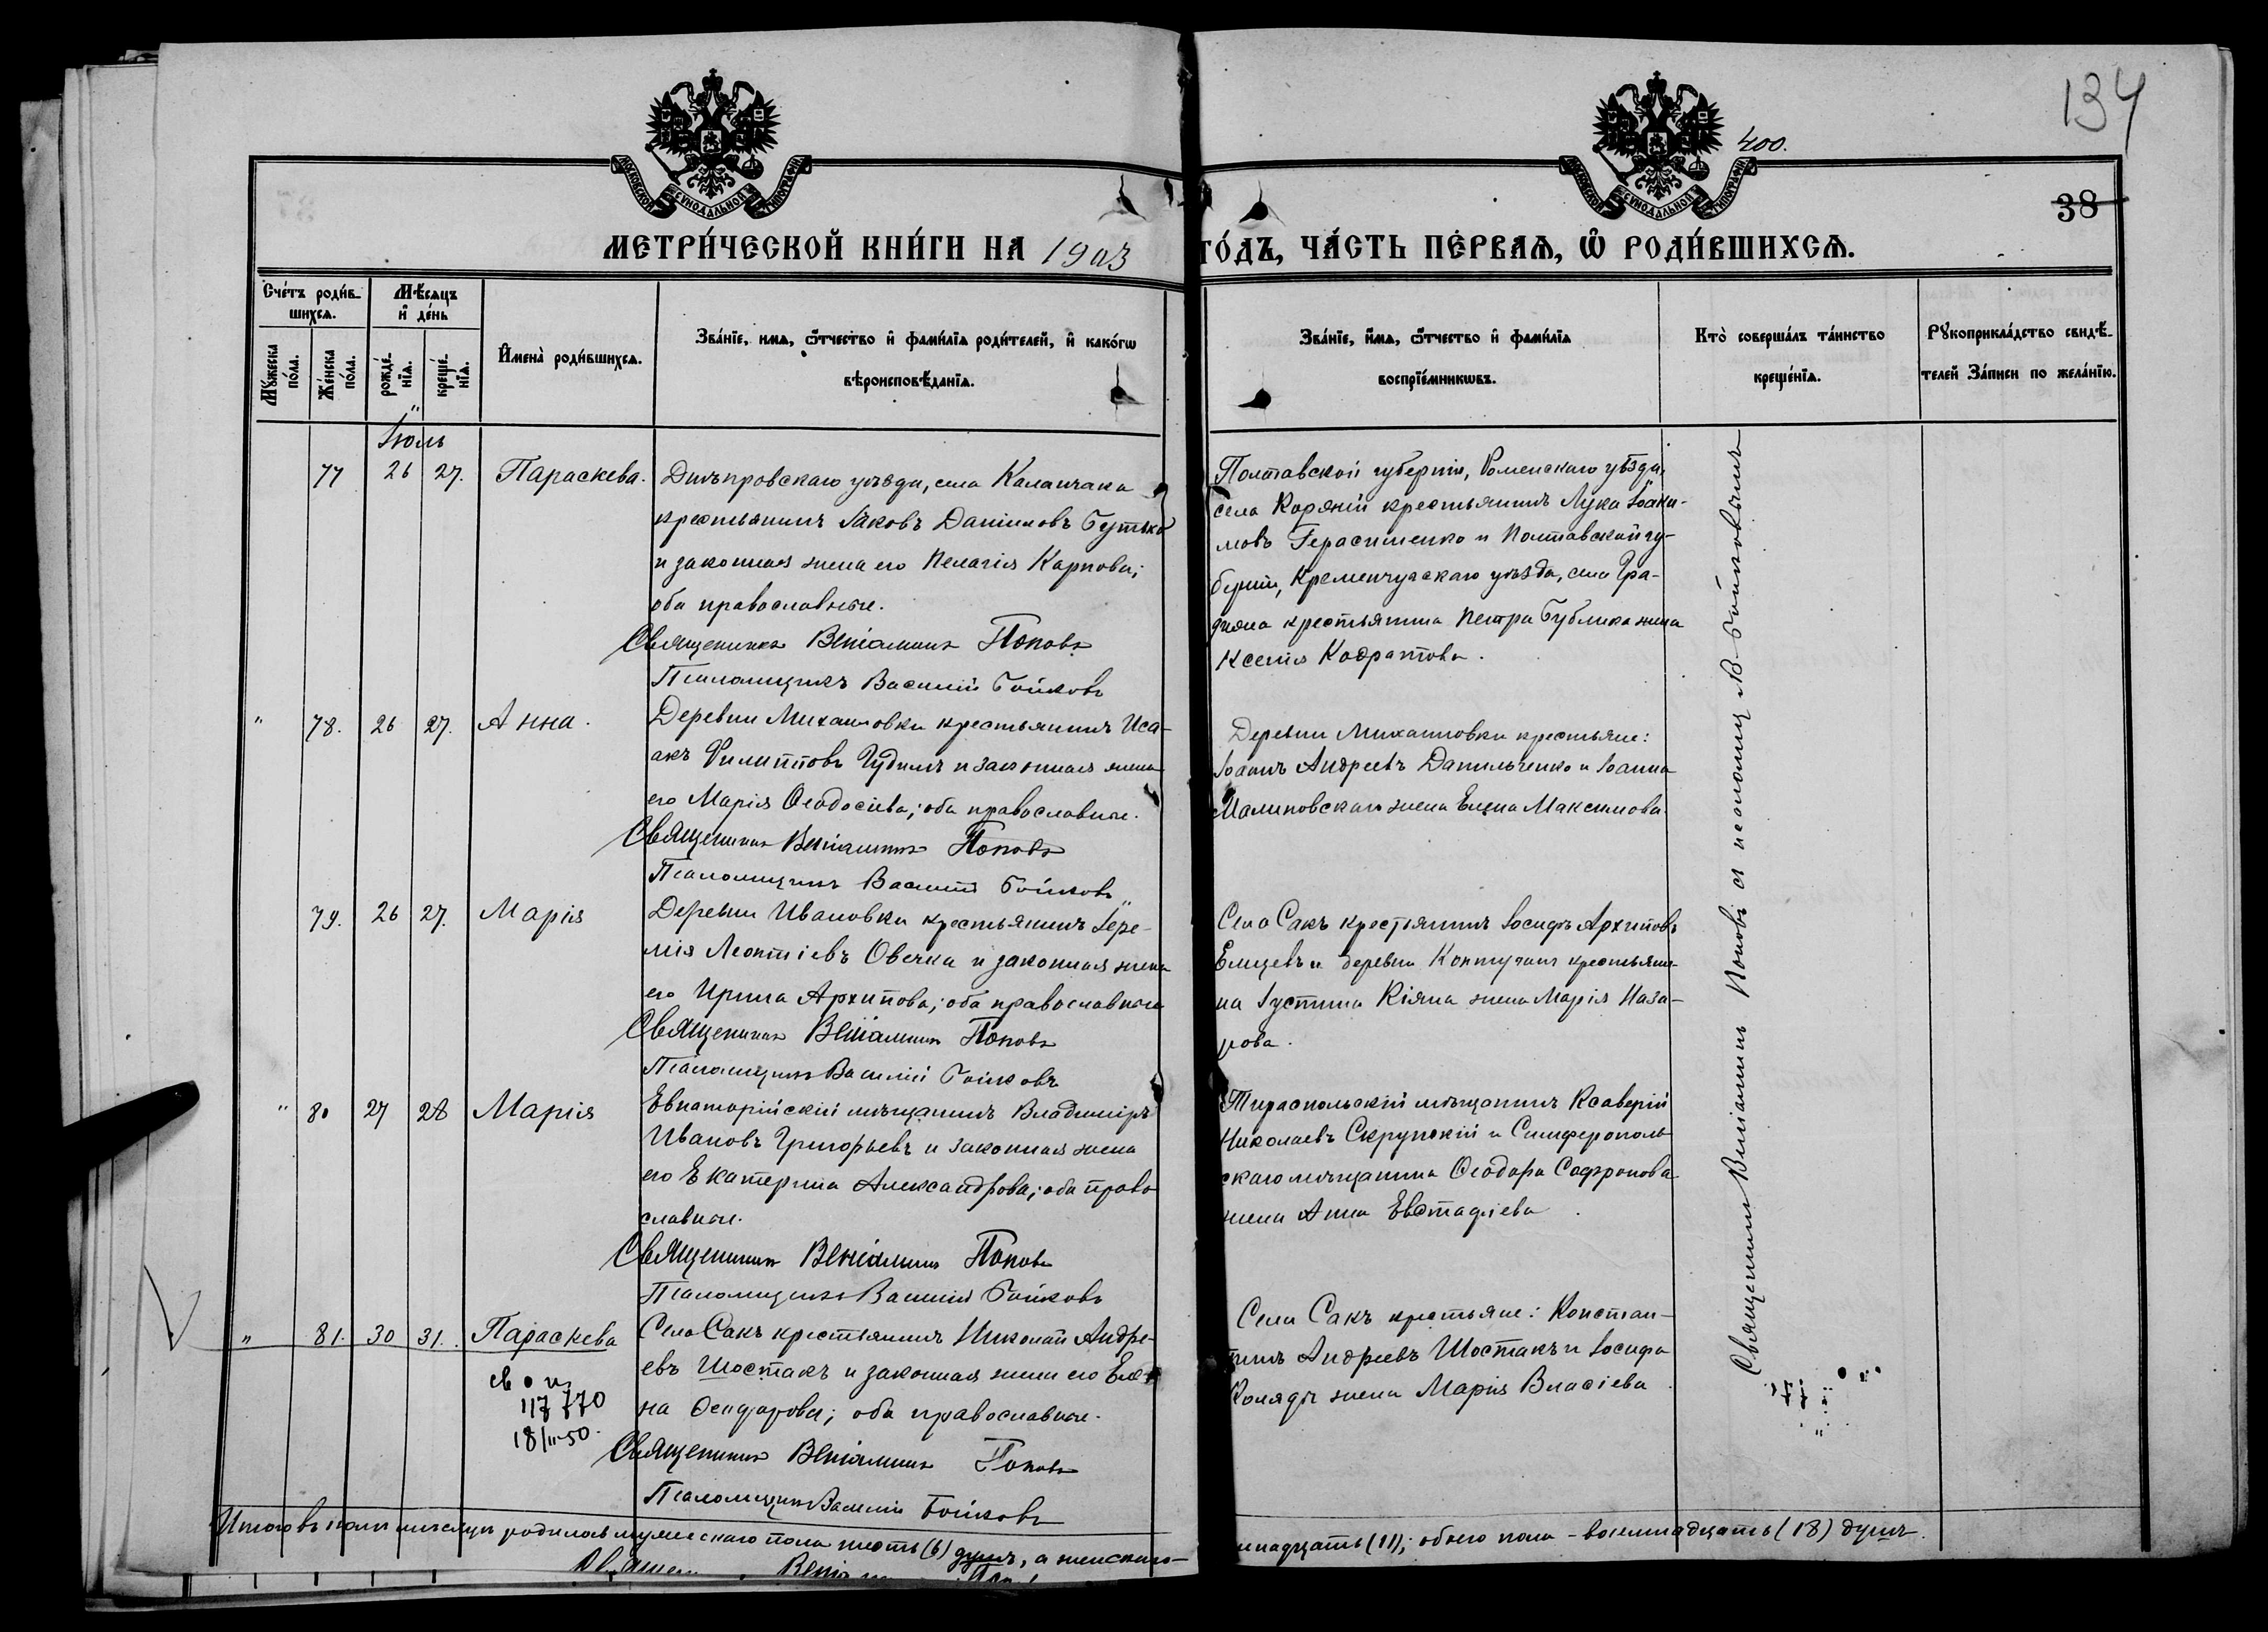 134
400.
38
МОСКОВСКОЙ СѴНОДАЛЬНОЙ ТИПОГРАФІИ
МОСКОВСКОЙ СѴНОДАЛЬНОЙ ТИПОГРАФІИ
МЕТРИ́ЧЕСКОЙ КНИ́ГИ НА 1903 ГО́ДЪ, ЧА́СТЬ ПЕ́РВАѦ, Ѽ РОДИ́ВШИХСѦ.
Сче́тъ роди́в-
шихсѧ.
Мѣ́сѧцъ
и҆ де́нь
Мꙋ́жеска по́ла.
Же́нска по́ла.
рожде́-
нїѧ.
креще́-
нїѧ.
И҆мена̀ роди́вшихсѧ.
Зва́нїе, имѧ, ѻ҆́тчество и҆ фами́лїѧ роди́телей, и҆ како́гѡ
вѣроисповѣ́данїѧ.
Зва́нїе, и҆́мѧ, ѻ҆́тчество и҆ фами́лїѧ
воспрїе́мникѡвъ.
Кто̀ соверша́лъ та́инство
креще́нїѧ.
Рꙋкоприкла́дство свидѣ́-
телей За́писи по жела́нїю.
Іюль
77 26 27. Параскева.
Днѣпровскаго уѣзда, села Каланчака
крестьянинъ Іаковъ Даніиловъ Бутько
и законная жена его Пелагія Карпова;
оба православные.
Священникъ Веніаминъ Поповъ
Псаломщикъ Василій Бойковъ
Полтавской губерніи, Роменскаго уѣзда,
села Коряній крестьянинъ Лука Іоаки-
мовъ Герасименко и Полтавской гу-
берніи, Кременчугскаго уѣзда, села Гра-
дизка крестьянина Петра Бублика жена
Ксенія Кодратова.
" 78. 26 27. Анна.
Деревни Михайловки крестьянинъ Иса-
акъ Филипповъ Гудимъ и законная жена
его Марія Ѳеодосіева; оба православные.
Священникъ Веніаминъ Поповъ
Псаломщикъ Василій Бойковъ
Деревни Михайловки крестьяне:
Іоаннъ Андреевъ Данильченко и Іоанна
Малиновскаго жена Елена Максимова.
79. 26 27. Марія
Деревни Ивановки крестьянинъ Іере-
мія Леонтіевъ Овечка и законная жена
его Ирина Архипова; оба православные
Священникъ Веніаминъ Поповъ
Псаломщикъ Василій Бойковъ
Села Сакъ крестьянинъ Іосифъ Архиповъ
Елицевъ и деревни Контуганъ крестьяни-
на Іустина Кіяна жена Марія Наза-
рова.
" 80 27 28 Марія
Евпаторійскій мѣщанинъ Владиміръ
Ивановъ Григорьевъ и законная жена
его Екатерина Александрова; оба право-
славные.
Священникъ Веніаминъ Поповъ
Псаломщикъ Василій Бойковъ
Тираспольскій мѣщанинъ Ксаверій
Николаевъ Скрупскій и Симферополь-
скаго мѣщанина Ѳеодора Софронова
жена Анна Евстафіева.
" 81. 30 31. Параскева
Села Сакъ крестьянинъ Николай Андре-
евъ Шостакъ и законная жена его Еле-
на Ѳеодорова; оба православные.
Священникъ Веніаминъ Поповъ
Псаломщикъ Василій Бойковъ
117 770
18/II-50.
Села Сакъ крестьяне: Констан-
тинъ Андреевъ Шостакъ и Іосифа
Коляды жена Марія Власіева.
Священникъ Веніаминъ Поповъ съ псаломщ. В. Бойковымъ
Итого въ іюлѣ мѣсяцѣ родилось мужескаго пола шесть (6) душъ, а женскаго-
надцать (11); обоего пола - восемнадцать (18) душъ.